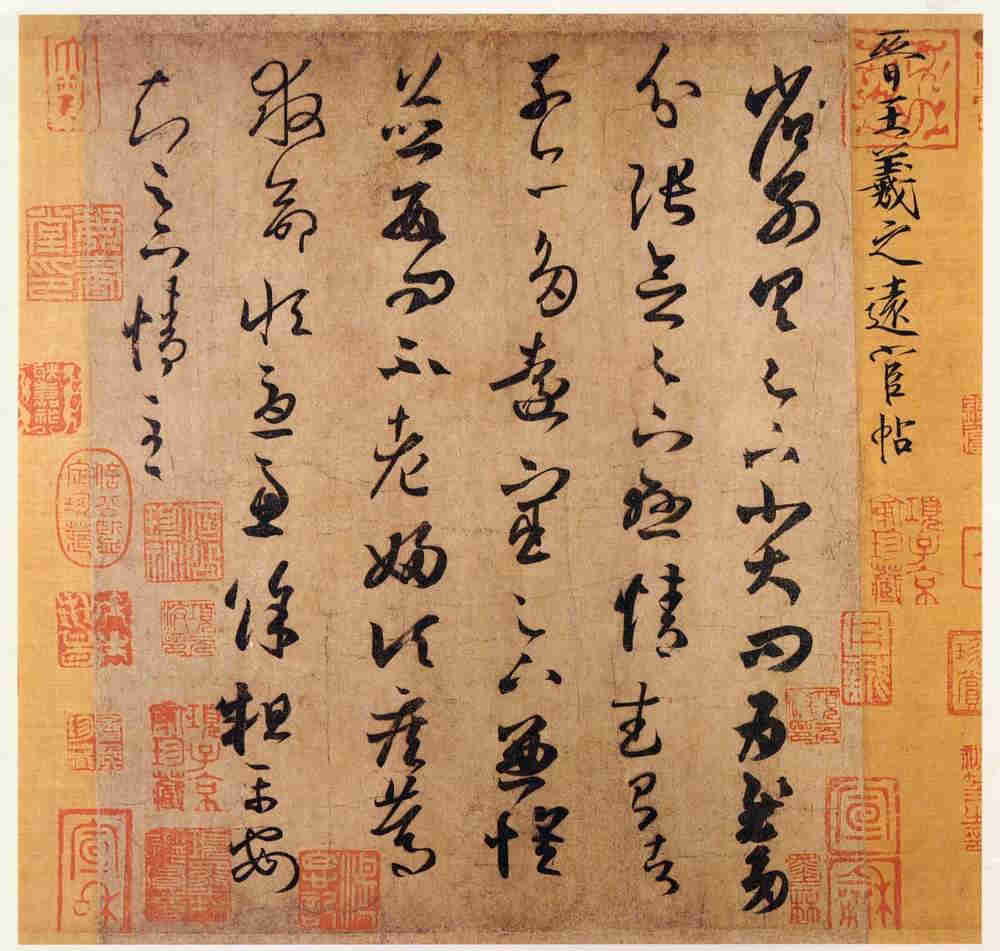 晉王羲之遠宦帖
省別具足下小大問為慰多
分張念足下懸情武昌諸
子亦多遠宦足下兼懷
並數問不老婦頃疾篤
救命恒憂慮餘粗平安
知足下情至
項子京家珍藏
項子京家珍藏